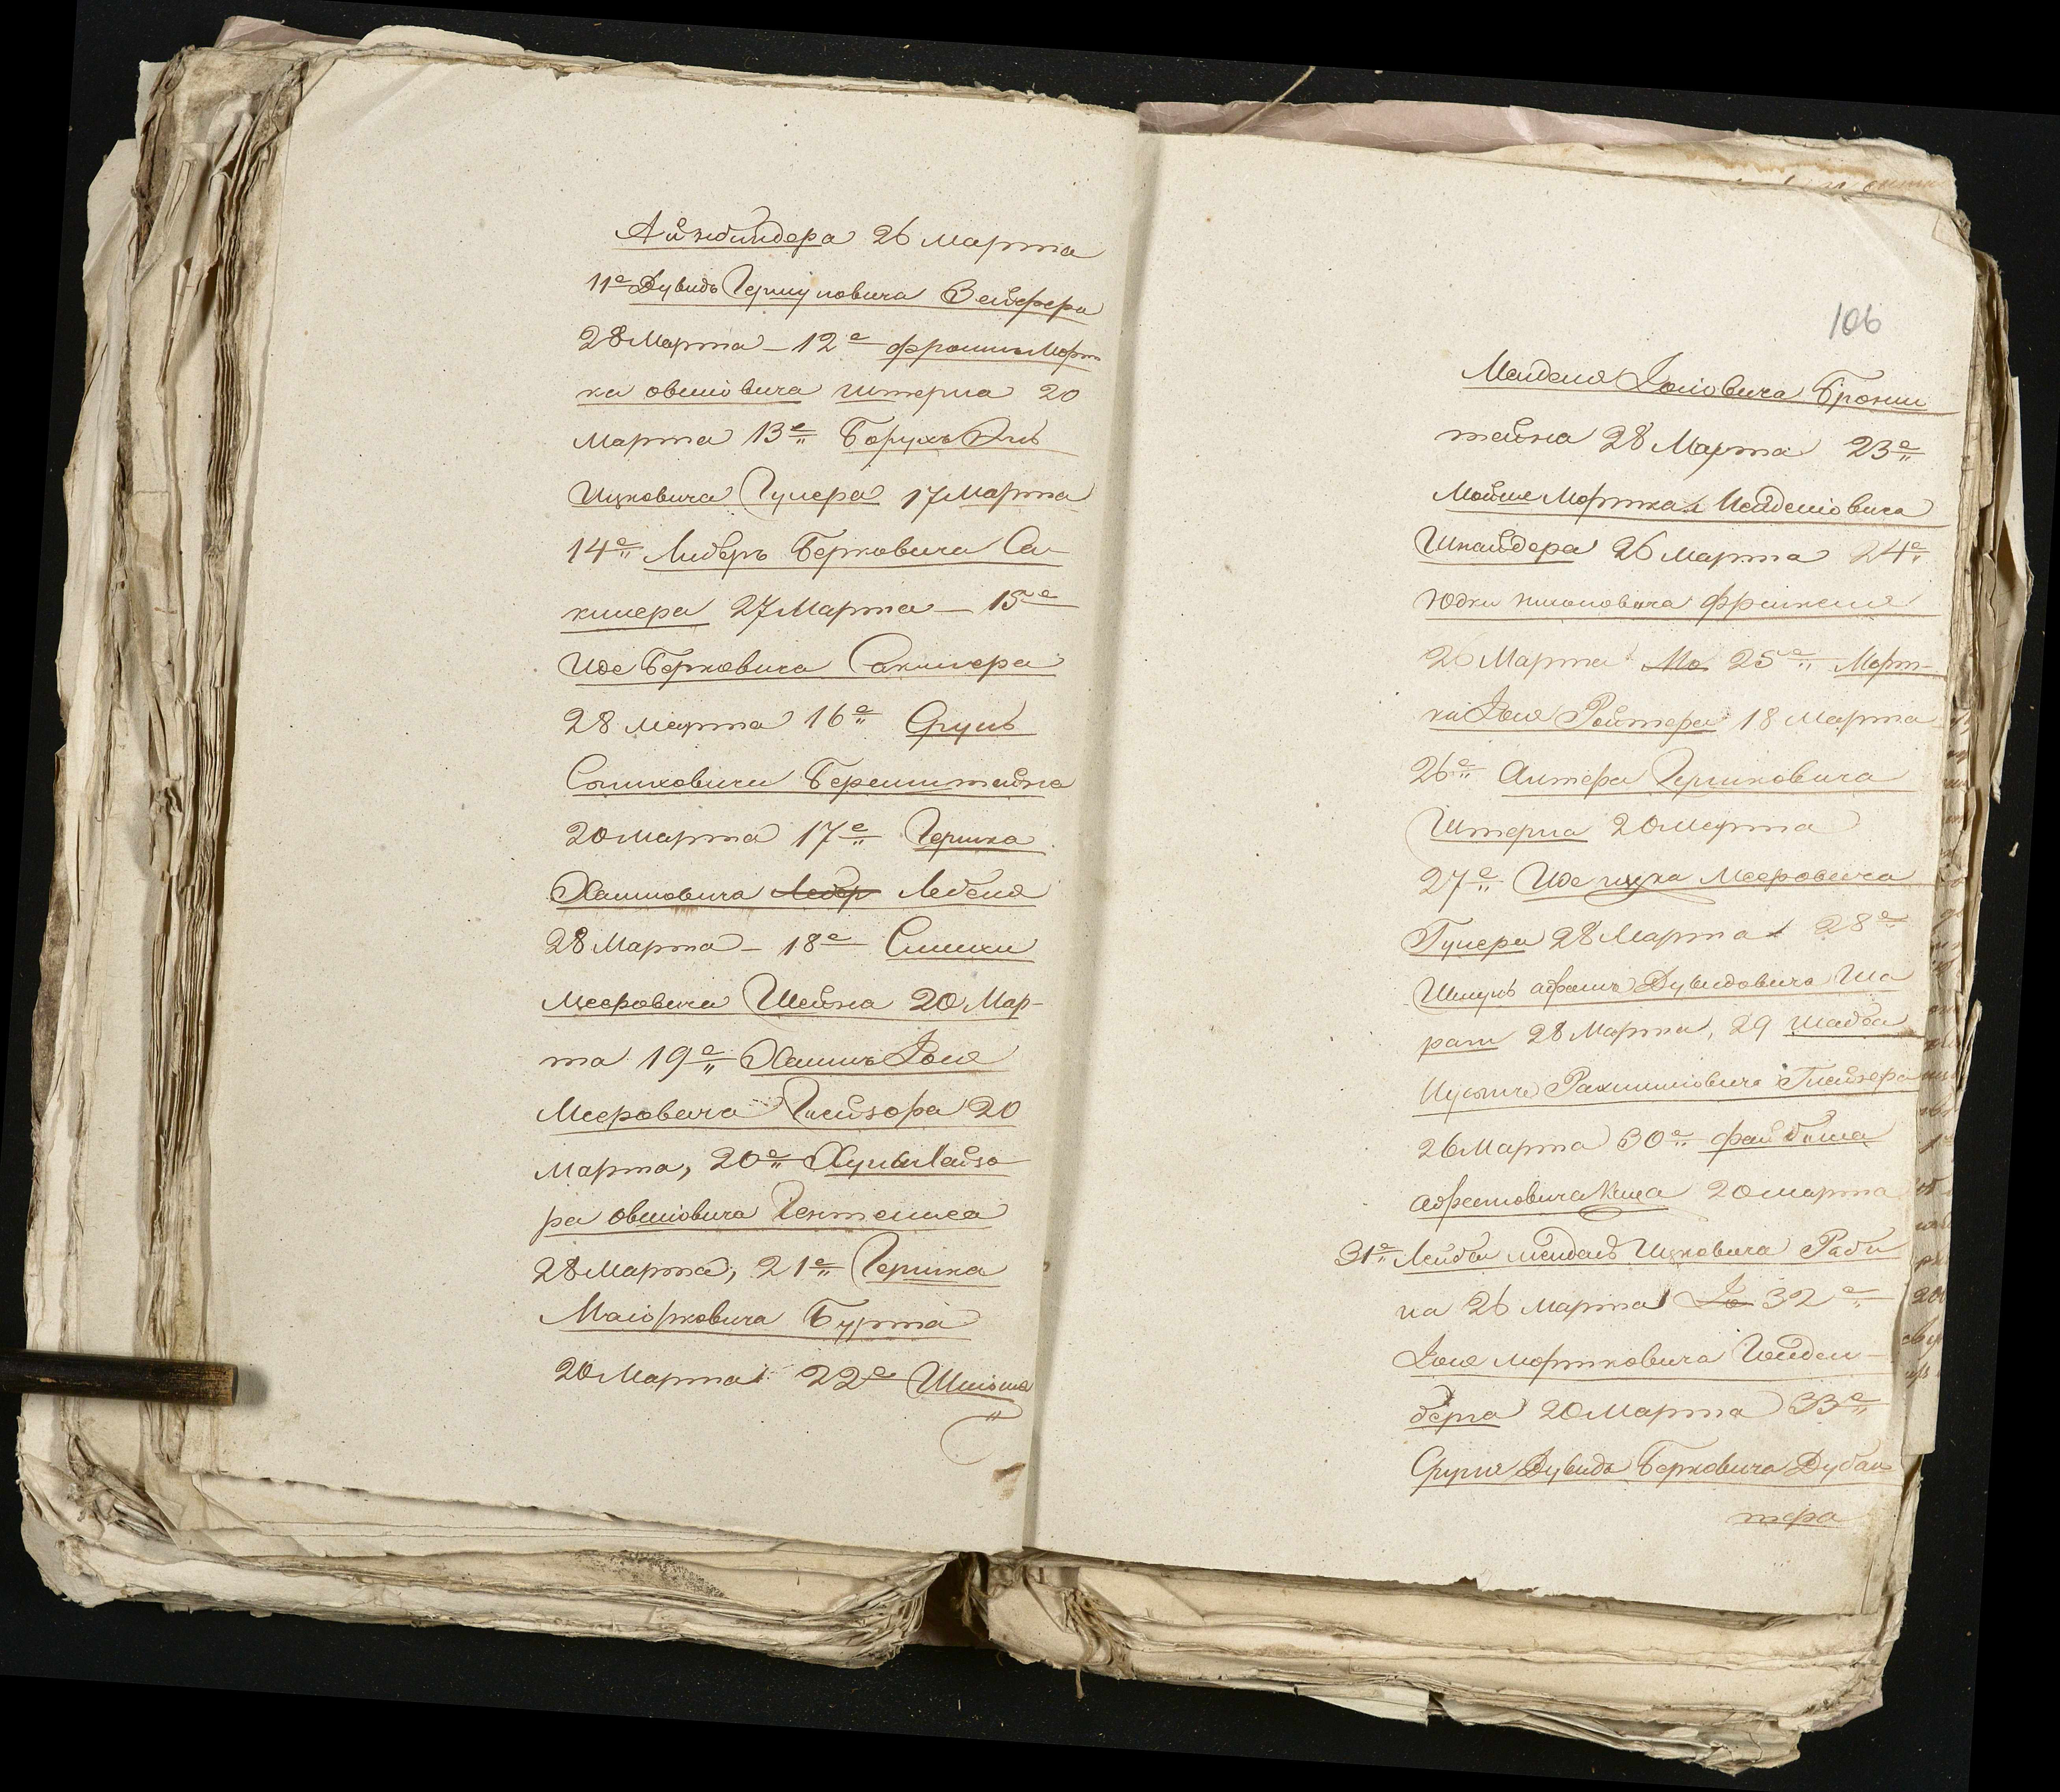 Айзбиндера 26 марта
11е Дувидъ Гершуновича Зейфера
28 Марта – 12е Фроимъ Морт
ка Овшiовича Штерна 20
Марта 13е Борухъ
Ицковича Гулера 17 Марта
14е Либеръ Берковича Са-
клиера 27 Марта – 15е
Иде Берковича Саклиера
28 марта 16е Сруль
Сомковича Беренштейна
20 марта 17е Гершка
Хаимовича Лебеля
28 Марта – 18е Симхи
Мееровича Шейна 20 Мар-
та 19е Хаимъ Iоля
Мееровича Глейзера 20
Марта, 20е Лейзо
ра Овшiовича Гентелиса
28 Марта, 21е Гершка
Маiорковича Бурта
20 Марта 22е Шлiома
106
Менделя Iоiовича Бронш
тейна 28 Марта 23е
Мойше Мортка Менделiовича
Шнайдера 26 Марта 24е
Юдки Шлiомовича Френкеля
26 Марта Мо 25е Морт-
ка Iоля Ройтера 18 Марта
26е Алтера Гершковича
Штерна 20 Марта
27е Иде Ицка Мееровича
Гулера 28 Марта 28е
Шмуль Абрамъ Дувидовича Ша
рат 28 Марта, 29 Шабса
Нусына Рахмилiовича Глейзера
26 Марта 30е Файвиша
Абрамовича Каца 20 марта
31е Лейби Мендель Ицковича Раби
на 26 Марта Iо 32е
Iоля Мортковича Гольден-
берга 20 Марта 33е
Сруля Дувидъ Берковича Дубан-
тера